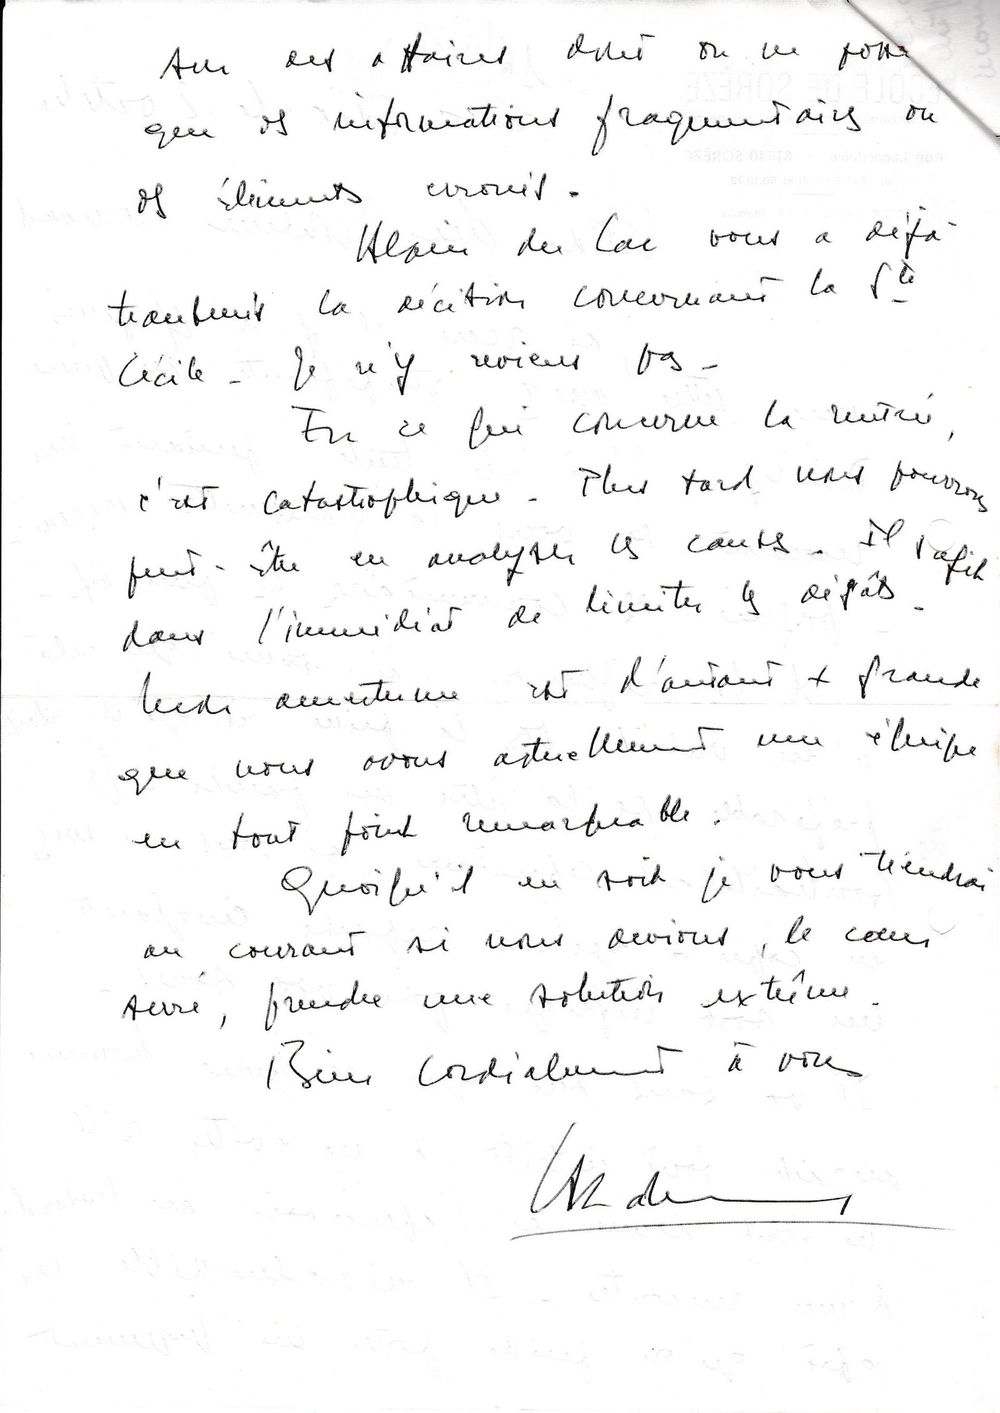 sur des affaires dont on ne possè
que des informations fragmentaires ou
des éléments erronés.
Alain du Lac vous a déjà
transmis la décision concernant la Ste
Cécile - Je n'y reviens pas -
En ce qui concerne la rentrée,
c'est catastrophique - Plus tard nous pourrons
peut-être en analyser les causes. Il s'agit
dans l'immédiat de limiter les dégâts -
Notre amertume est d'autant + grande
que nous avons actuellement une équipe
en tout point remarquable.
Quoiqu'il en soit je vous tiendrai
au courant si nous devions, le cœur
serré, prendre une solution extrême.
Bien cordialement à vous